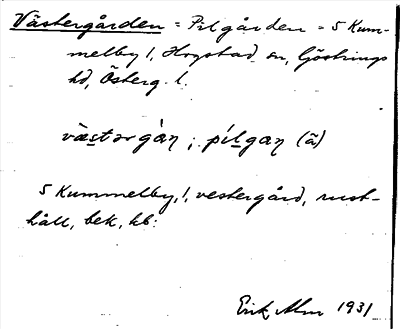 Västergården = Pilgården = 5 Kum-
melby !, Hogstad sn, Göstrings
hd, Österg. l.
västərgàn ; pílgaɳ (ã)
5 Kummelby, !, vestergård, rust-
håll, bek, kb:
Erik Alm 1931